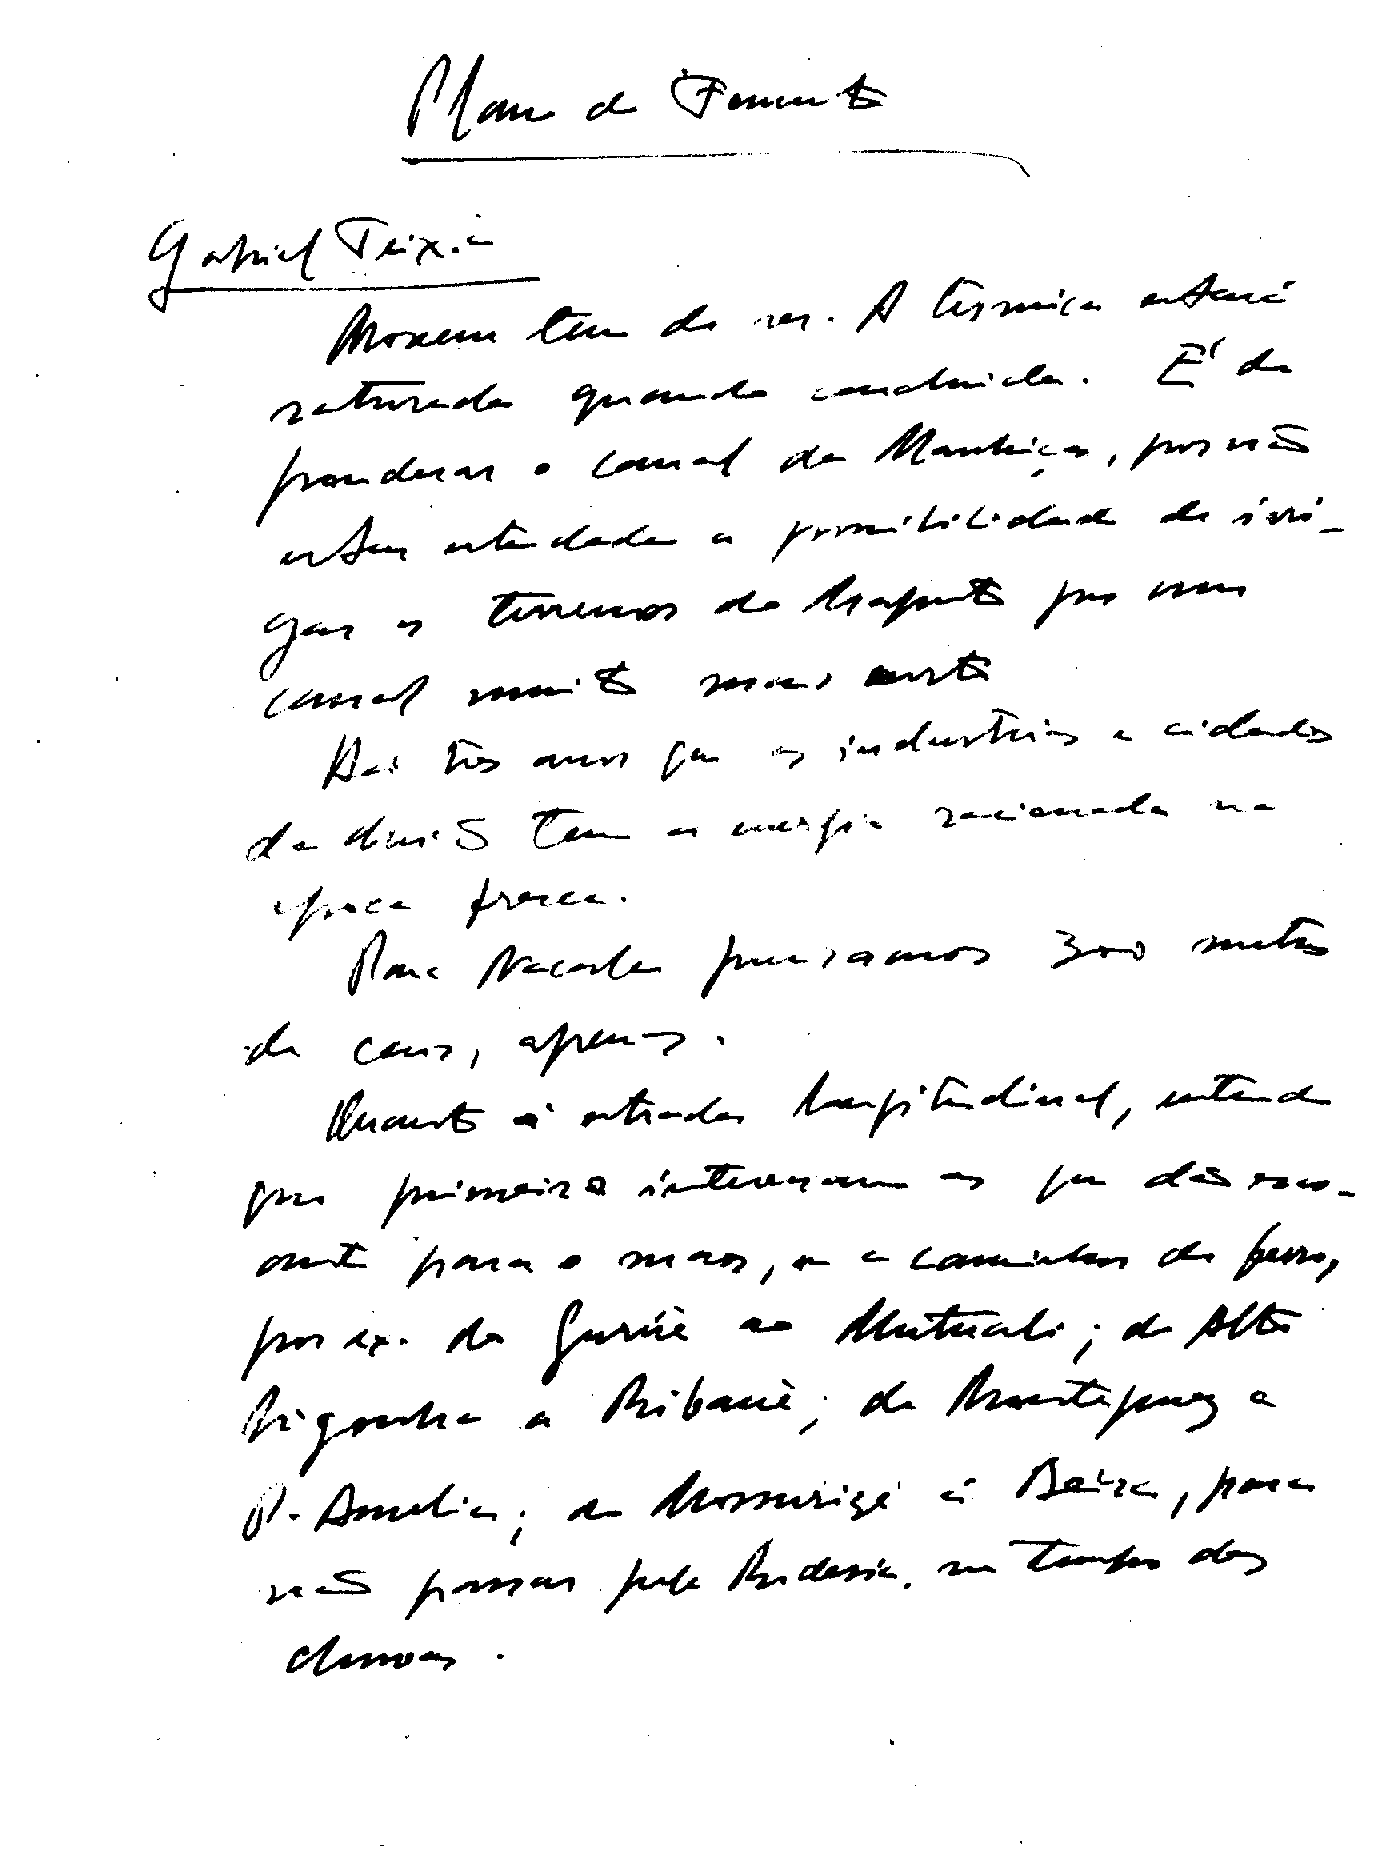 Plano de Fomento
Gabriel Teixeira
Movene tem de ser. A térmica estará
saturada quando concluida. É de
ponderar o canal da Manhiça, pois não
estar estudada a possibilidade de irri-
gar os terrenos de Maputo por um
canal muito mais curto
Há três anos que as industrias e cidades
de tem a energia racionada na
época fresca.
Para Nacala precisamos 300 metros
de cais, apenas.
Quanto à estrada longitudinal, entende
que primeiro interessam as que dão esco-
ante para o mar, ou a caminhos de ferro,
por ex. do Gurúè ao Mutuali; de Alto
Ligonha a Ribauè; de Montepuez a
P. Amelia; de Mossurize à Beira, para
não passar pela Rodesia, no tempo das
chuvas.